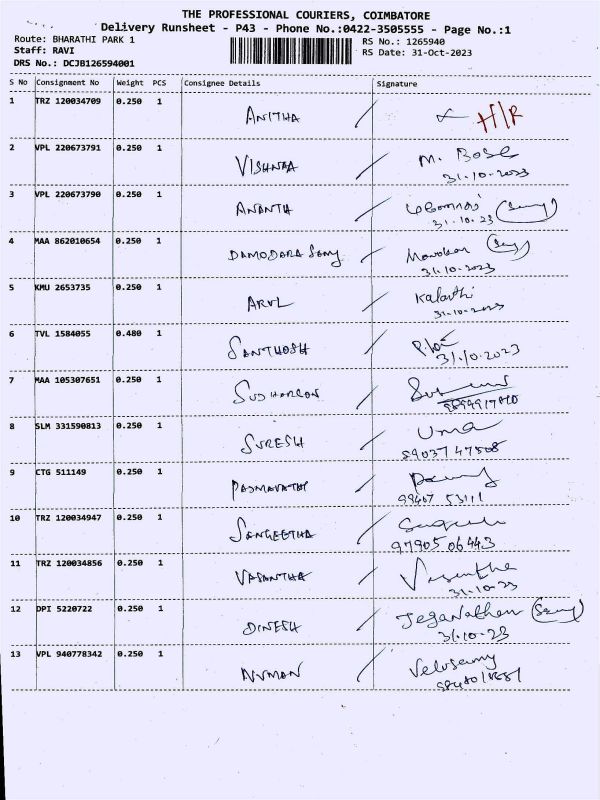 THE PROFESSIONAL COURIERS, COIMBATORE
Delivery Runsheet - P43 - Phone No.:0422-3505555 - Page No.:1
Route: BHARATHI PARK 1
RS No.: 1265940
Staff: RAVI
RS Date: 31-Oct-2023
DRS No.: DCJB126594001
S No Consignment No Weight PCS Consignee Details Signature
1 TRZ 120034709 0.250 1 ANITHA H/R
2 VPL 220673791 0.250 1 M. Bose
31.10.2023
3 VPL 220673790 0.250 1 ANANTH
31.10.23
4 MAA 862010654 0.250 1 DAMODARA Samy Manohar
31.10.2023
5 KMU 2653735 0.250 1 ARUL
31.10.2023
6 TVL 1584055 0.480 1 SANTHOSH
31.10.2023
7 MAA 105307651 0.250 1
8 SLM 331590813 0.250 1 SURESH Uma
89037 47508
9 CTG 511149 0.250 1 PADMAVATHI
99467 53111
10 TRZ 120034947 0.250 1 SANGEETHA
97905 06443
11 TRZ 120034856 0.250 1 VASANTHA Vasantha
31.10.23
12 DPI 5220722 0.250 1 DINESH Jeganathan
31.10.23
13 VPL 940778342 0.250 1 Velusamy